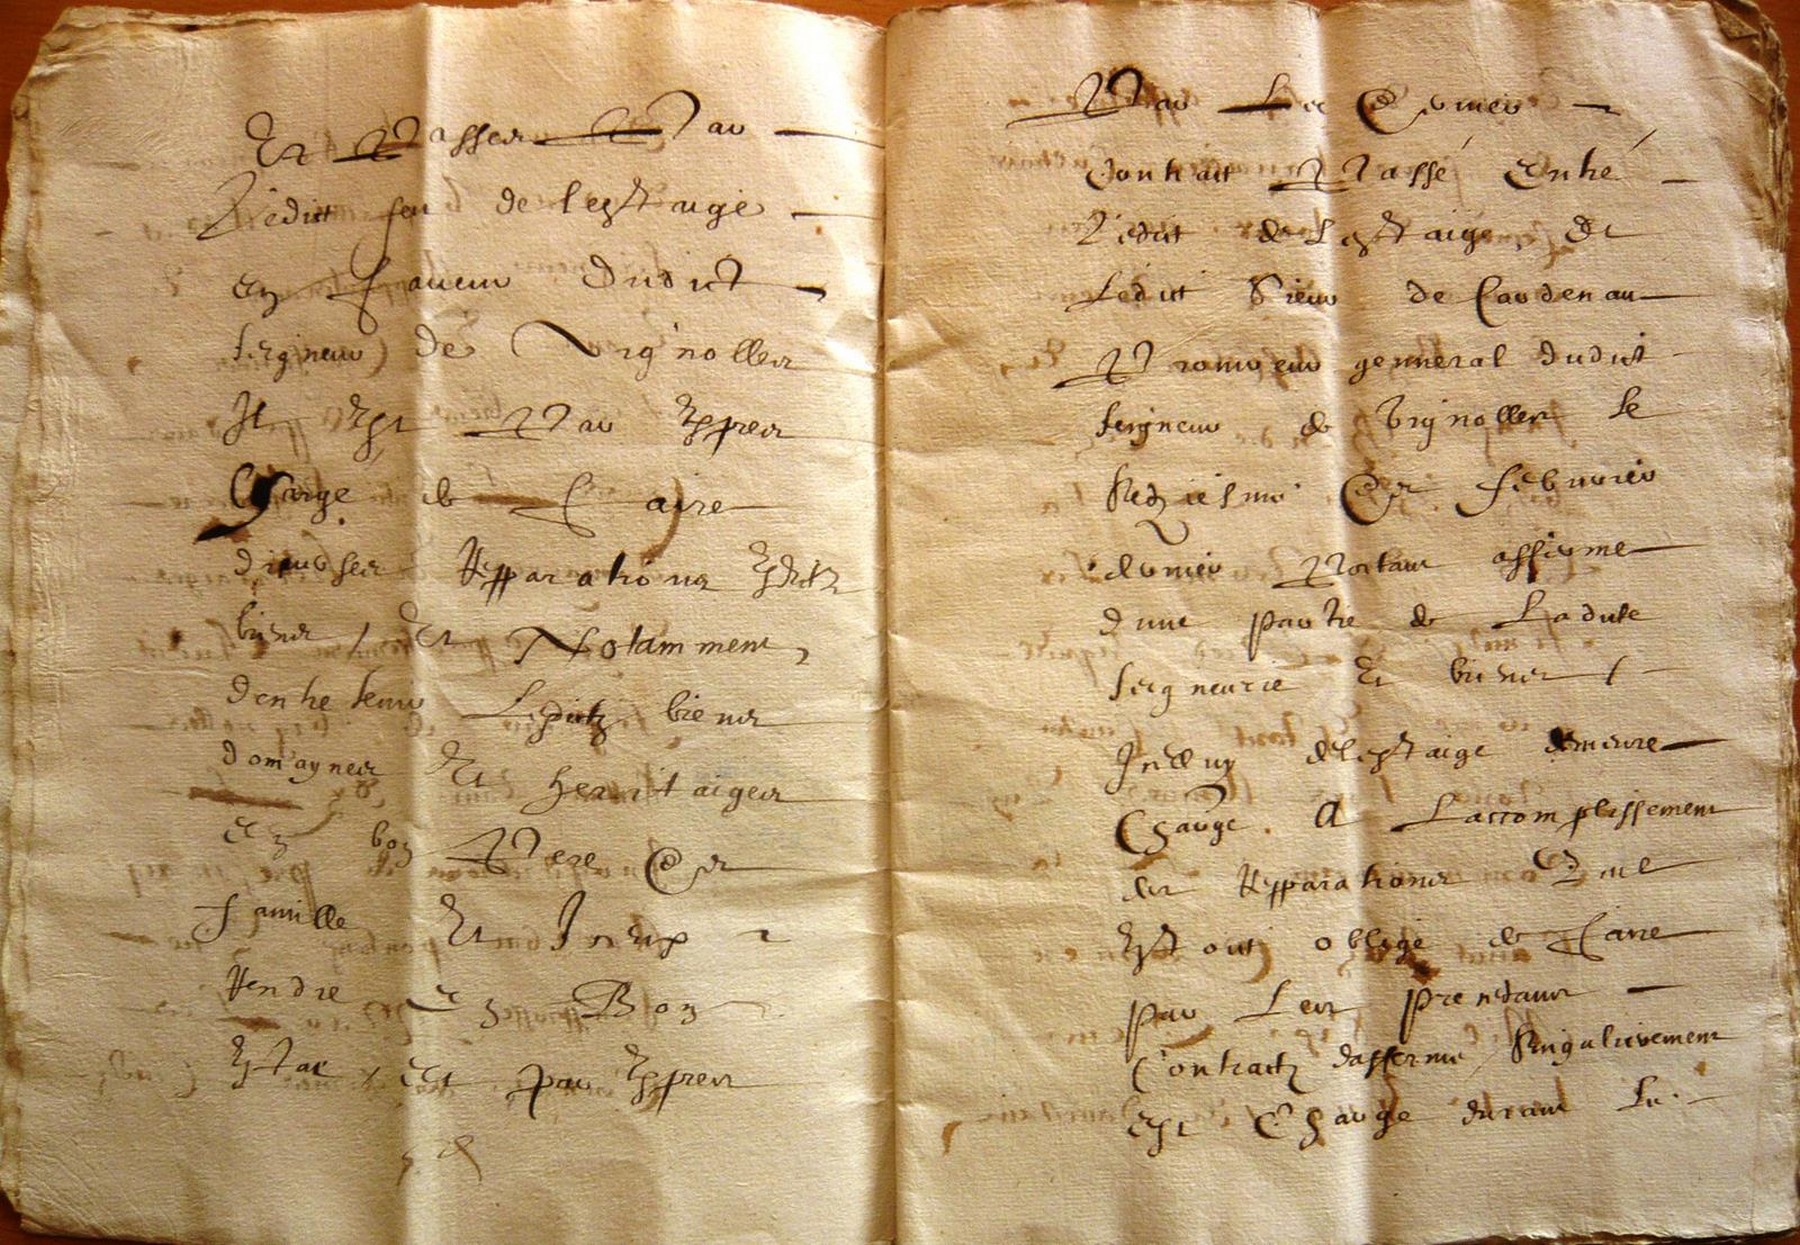 Et Passer Par
Ledict feu de lestaige
en faveur dudict
seigneur de Vignolles
Il Est Par Exprez
Charge de Faire
diverses Repparations Esdictz
biens, Et Notamment,
dentretenir Lesdictz biens
domaynes Et herritaiges
en bon Pere de
famille Et Iceux
Rendre en Bon
Estat, et par Exprez
Par Le Dernier
Contract Passé Entre
Ledict de Lestaige, Et
Ledict Sieur de Cardenau
Procureur genneral dudict
Seigneur de Vignolles le
Setziesme de Febvrier
dernier Portant afferme
dune partie de Ladicte
seigneurie Et biens
Icelluy de lestaige demeure
Charge A Laccomplissement
des Repparations Que
Estoict oblige de Faire
par Les precedans
Contractz dafferme, Singulierement
est Charge durant Le